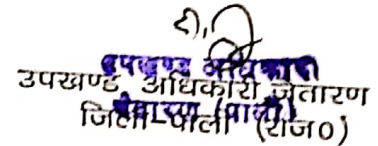 उपखण्ड अधिकारी
उपखण्ड अधिकारी जेतारण
जेतारण (पाली)
जिला-पाली (राज०)